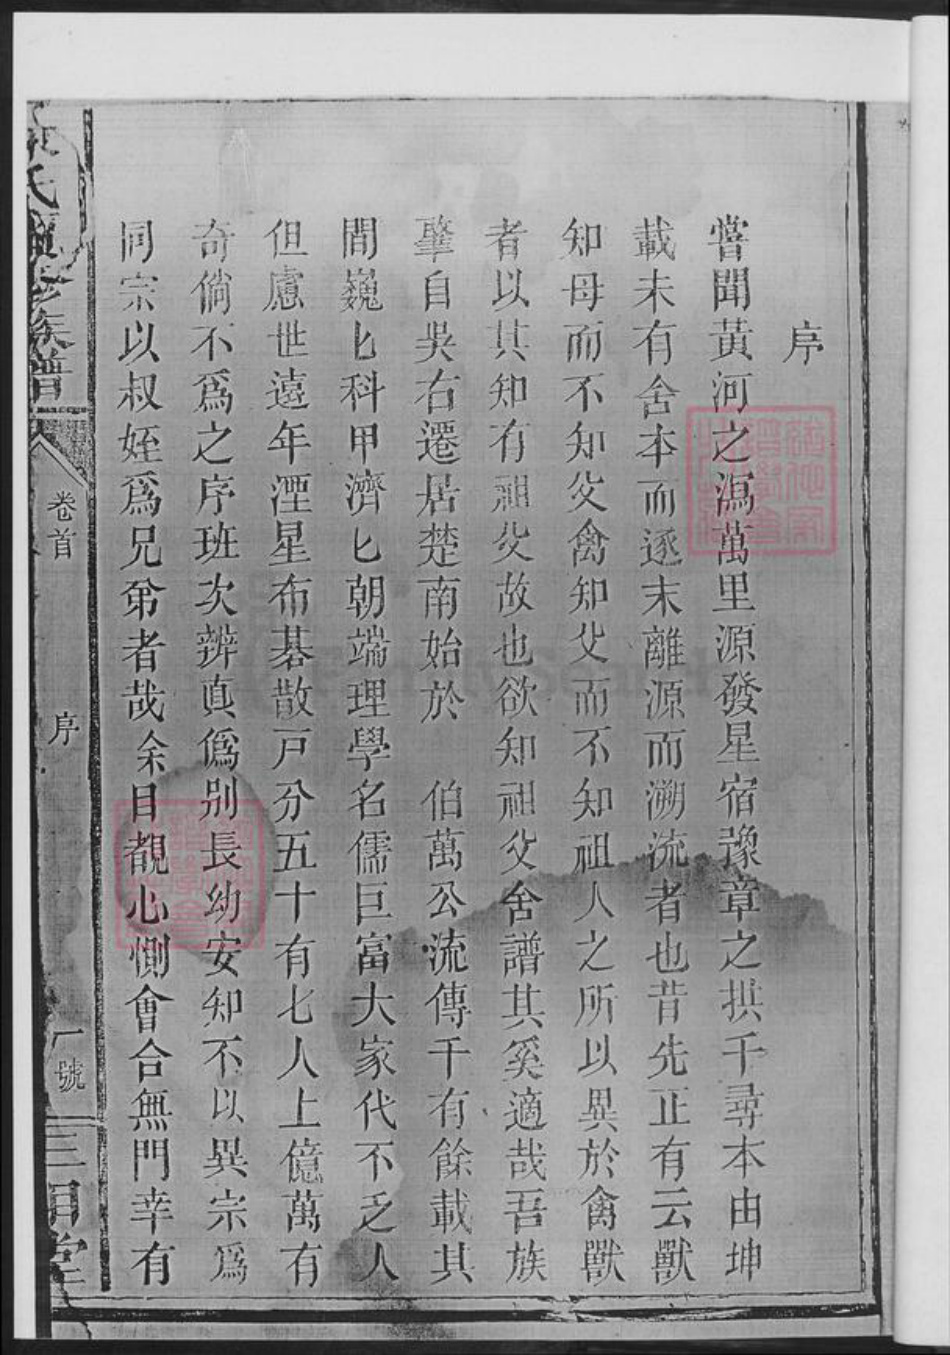 序
嘗聞黃河之瀉萬里源發星宿豫章之拱千尋本由坤
載未有舍本而逐末離源而溯流者也昔先正有云獸
知母而不知父禽知父而不知祖人之所以異於禽獸
者以其知有祖父故也欲知祖父舍譜其奚適哉吾族
肇自吳右遷居楚南始於 伯萬公流傳千有餘載其
間巍匕科甲濟匕朝端理學名儒巨富大家代不乏人
但慮世遠年湮星布碁散戸分五十有七人上億萬有
奇倘不爲之序班次辨真僞别長幼安知不以異宗爲
同宗以叔姪爲兄弟者哉余目覩心惻會合無門幸有
氏 族譜
卷首
序
號
三 堂
FamilySearch